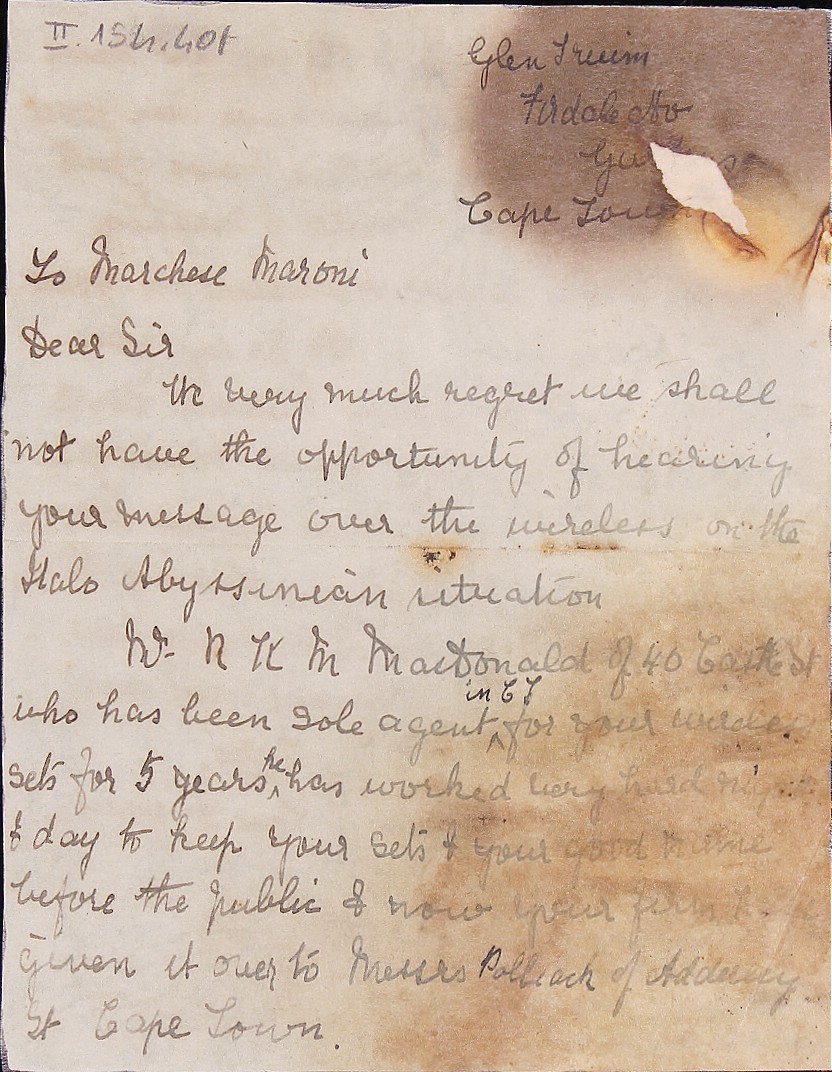 II.154.401
Glen Truim
Firdale Av
Cape Town
To Marchese Maroni
Dear Sir
We very much regret we shall
not have the opportunity of hearing
your message over the wireless on the
Italo Abyssinian situation
Mr R K M MacDonald of 40 Castle St
who has been sole agent in CT for your wireless
sets for 5 years, he has worked very hard
& day to keep your sets & your good name
before the public & now your firm
given it over to Messrs Polliack of Adderley
St Cape Town.